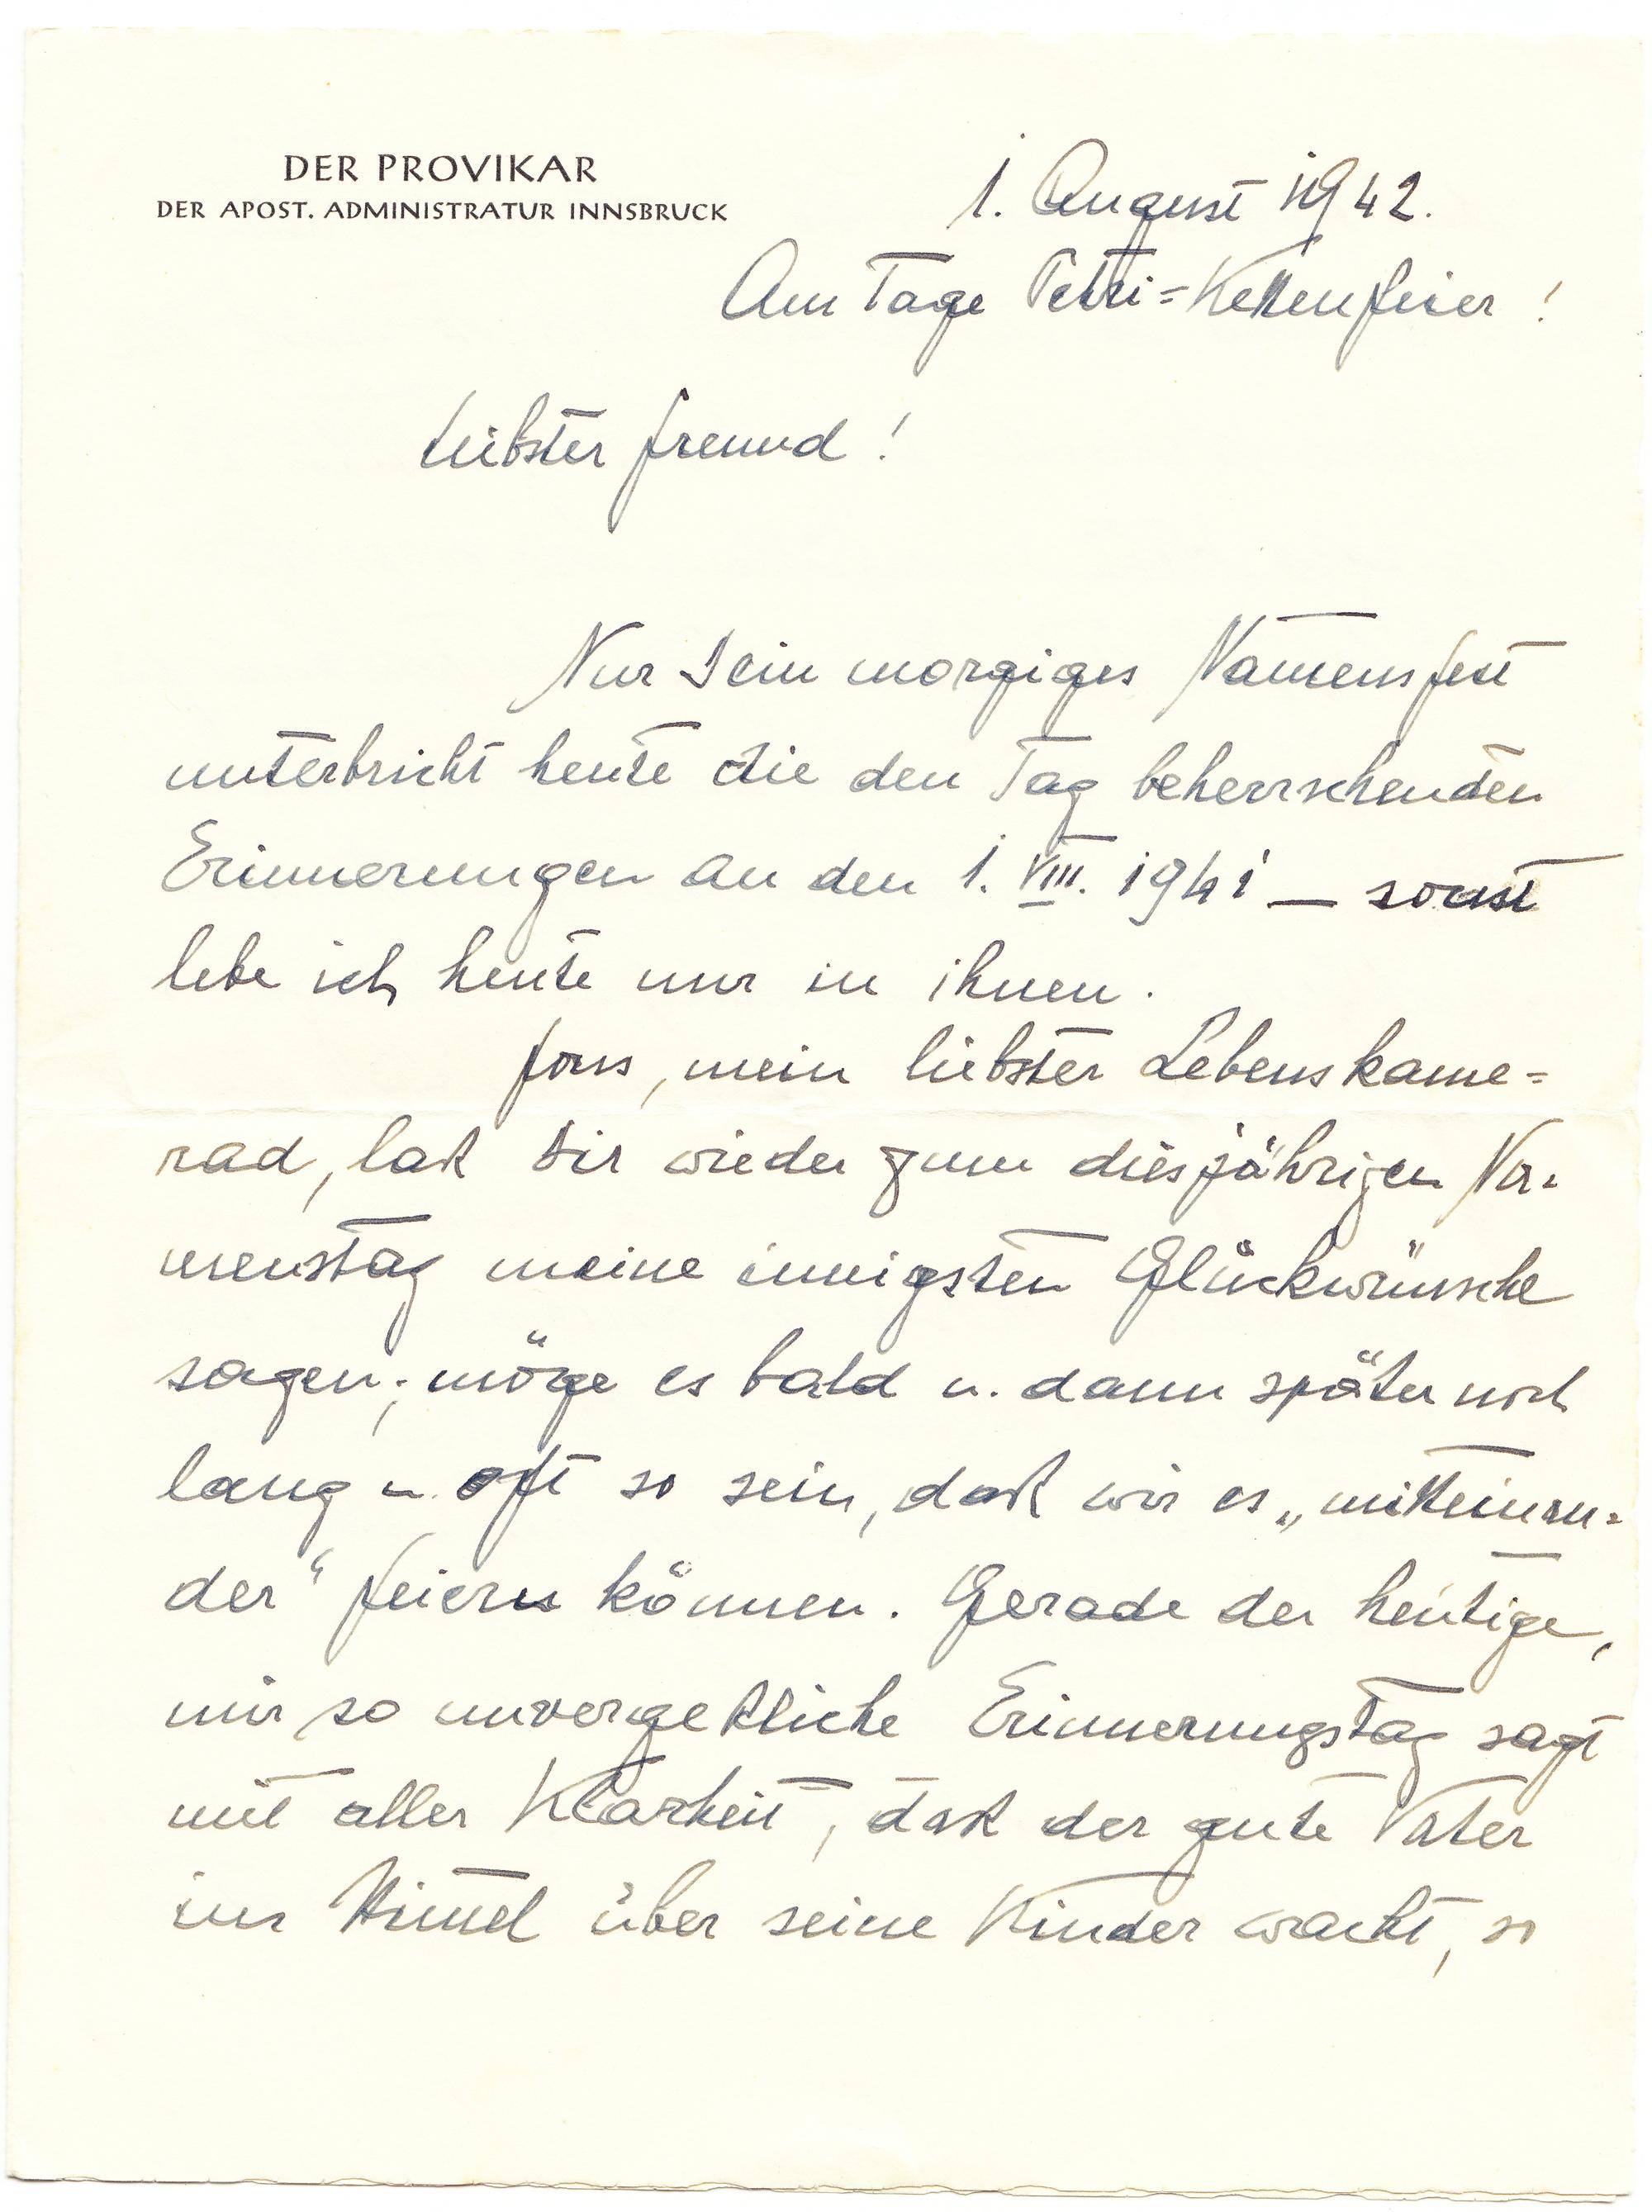 DER PROVIKAR
DER APOST. ADMINISTRATUR INNSBRUCK
1. August 1942.
Am Tage Petri=Kettenfeier!
Liebster Freund!
Nur Dein morgiges Namensfest
unterbricht heute die den Tag beherrschenden
Erinnerungen an den 1. VIII. 1941 — sonst
lebe ich heute nur in ihnen.
Fons, mein liebster Lebenskame=
rad, laß Dir wieder zum diesjährigen Na=
menstag meine innigsten Glückwünsche
sagen; möge es bald u. dann später noch
lang u. oft so sein, daß wir es „mitteinan=
der“ feiern können. Gerade der heutige,
mir so unvergeßliche Erinnerungstag sagt
mit aller Klarheit, daß der gute Vater
im Himmel über seine Kinder wacht, so